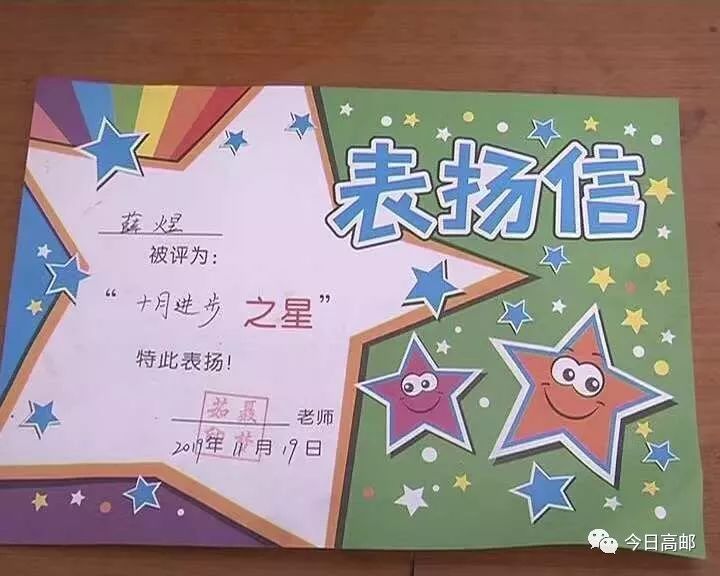 表扬信
薛煜
被评为：
“十月进步 之星”
特此表扬！
老师
2019年11月19日
今日高邮